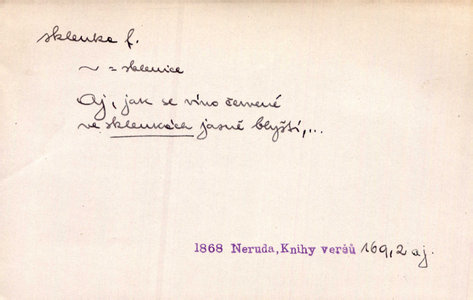 sklenka f.
~ = sklenice
Aj, jak se víno červené
ve sklenkách jasně blyští,...
1868 Neruda, Knihy veršů 169,2 aj.